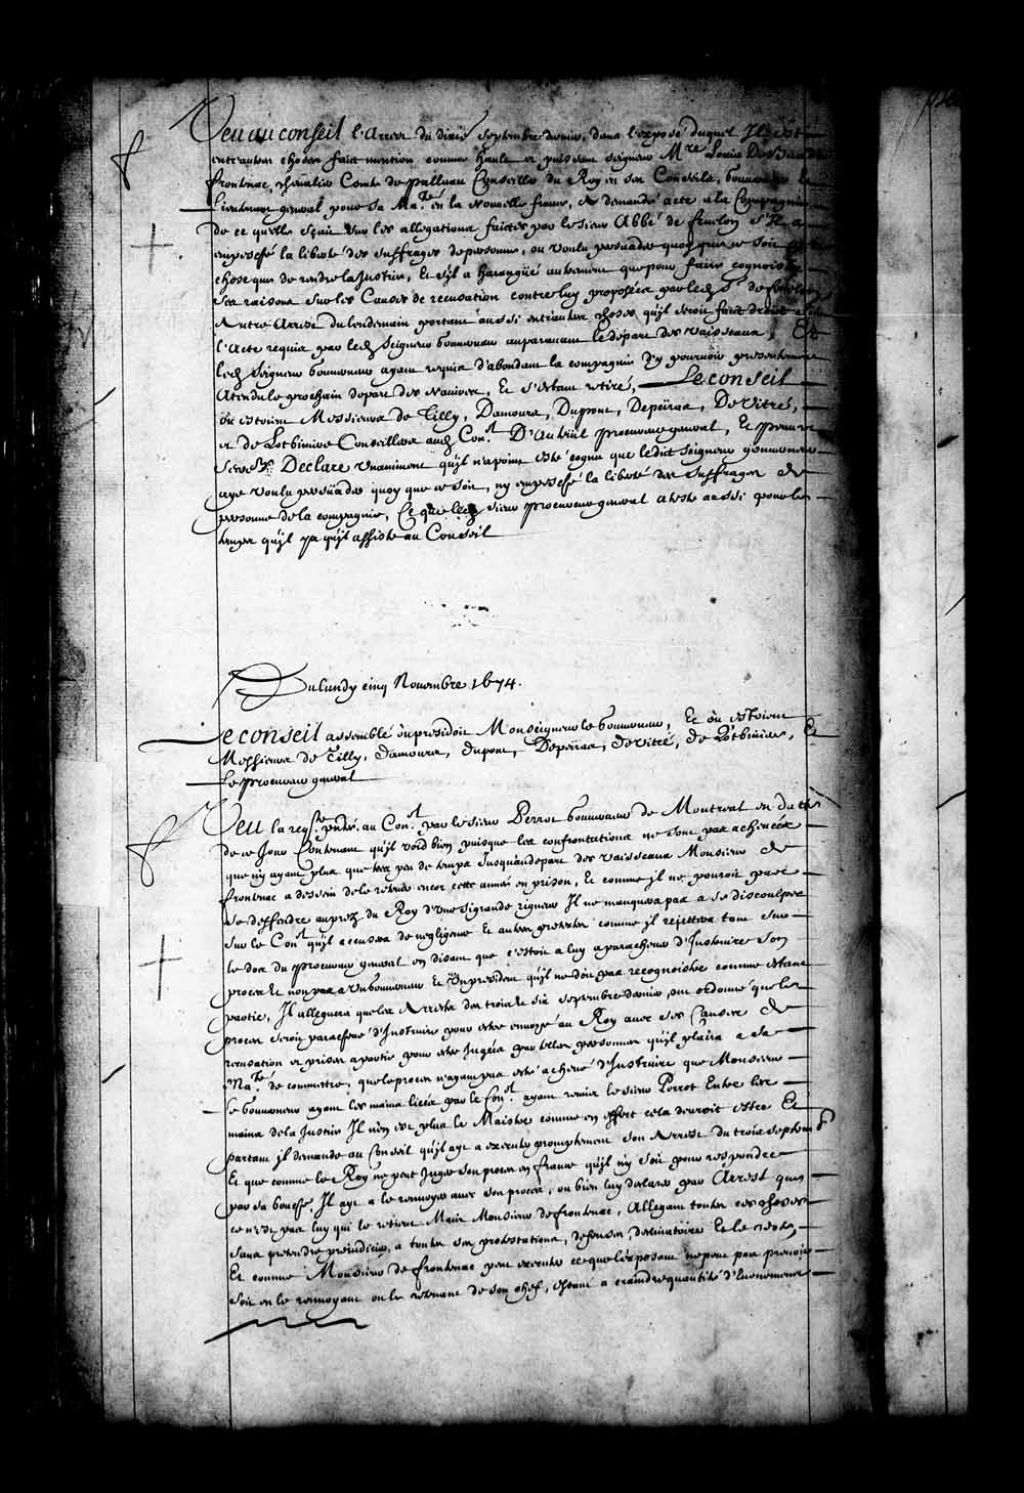 Veu au conseil l'arrest du dixie septembre dernier, dans l'exposé duquel Il est
entrautres choses faict mention comme hault et puissant seigneur Mre Louis De Buade
frontenac, chevalier Comte de palluau Conseiller du Roy en ses Conseils, Gouverneur et
Lieutenant general pour sa Maté en la Nouvelle france, a demandé acte a la Compagnie
de ce quelle sçait sur les allegations faictes par le sieur Abbé de fenelon s'Il a
empesché la liberté des suffrages de personne, ou voulu persuader quoy que ce soit
chose que de rendre la Justice, Et s'Il a harangué autrement que pour faire cognoistre
ses raisons sur les Causes de recusation contre luy proposées par led Sr de fenelon
Autre Arrest du lendemain portant aussi entrautres choses qu'jl seroit faict droict sur
l'Acte requis par led Seigneur Gouverneur auparavant le depart des vaisseaux, Et
led Seigneur Gouverneur ayant requis d'abondant la compagnie d'y pourvoir presentement
Attendu le prochain depart des Navires, Et s'estant retiré, Le conseil
où estoient Messieurs de Tilly, Damours, Dupont, Depeiras, De Vitré,
et de Lotbiniere Conseillers aud Conl D'Auteuil procureur general, Et
Declare unanimement qu'jl n'a point esté cognu que ledict Seigneur gouverneur
aye voulu persuader quoy que ce soit, ny empesché la liberté des suffrages de
personne de la compagnie, Ce que led sieur procureur general atteste aussi pour le
temps qu'jl y a qu'jl assiste au Conseil
Du lundy cinq Novembre 1674.
Le conseil assemblé où presidoit Monseigneur le Gouverneur, Et où estoient
Messieurs de Tilly, Damours, dupont, Depeiras, de Vitré, de Lotbiniere, Et
Le procureur general
Veu la reqte pntée. au Conl par le sieur Perrot Gouverneur de Montreal en datte
de ce Jour Contenant qu'jl void bien puisque les confrontations ne sont pas achevées
que n'y ayant plus que tres peu de temps Jusqu'au depart des vaisseaux Monsieur de
frontenac a dessein de le retenir encor cette année en prison, Et comme jl ne pouroit pas
se deffendre auprez du Roy d'une si grande rigueur Il ne manquera pas a se disculper
sur le Conl qu'jl accusera de negligence Et autres pretextes comme jl rejettera tout sur
le dos du procureur general en disant que c'estoit a luy a parachever d'Instruire son
procez Et non pas a un Gouverneur Et un president qu'jl ne doit pas recognoistre comme estant
partie, Il alleguera que les Arrests des trois et six septembre dernier, ont ordonné que le
procez seroit parachevé d'Instruire pour estre envoyé au Roy avec ses Causes de
recusation et prises a partie pour estre Jugées par telles personnes qu'jl plaira a Sa
Maté de commettre, que le procez n'ayant pas esté achevé d'Instruire que Monsieur
le Gouverneur ayant les mains liées par le Conl ayant remis le sieur Perrot Entre les
mains de la Justice Il n'en est plus le Maistre comme en effect cela devroit estre Et
partant jl demande au Conseil qu'jl aye a executer promptement son Arrest du trois septembre
Et que comme le Roy ne peut Juger son procez en france qu'jl n'y soit pour respondre
par sa bouche Il aye a le renvoyer avec son procez, ou bien luy declarer par Arrest que
ce n'est pas luy qui le retient Mais Monsieur de frontenac, Allegant toutes ces choses
sans pretendre prejudicier, a toutes ses protestations, defenses, declinatoire Et le reste,
Et comme Monsieur de frontenac peut executer ce que l'exposant ne peut pas prevoir
soit en le renvoyant ou le retenant de son chef, estant a craindre quantité d'Inconvenients